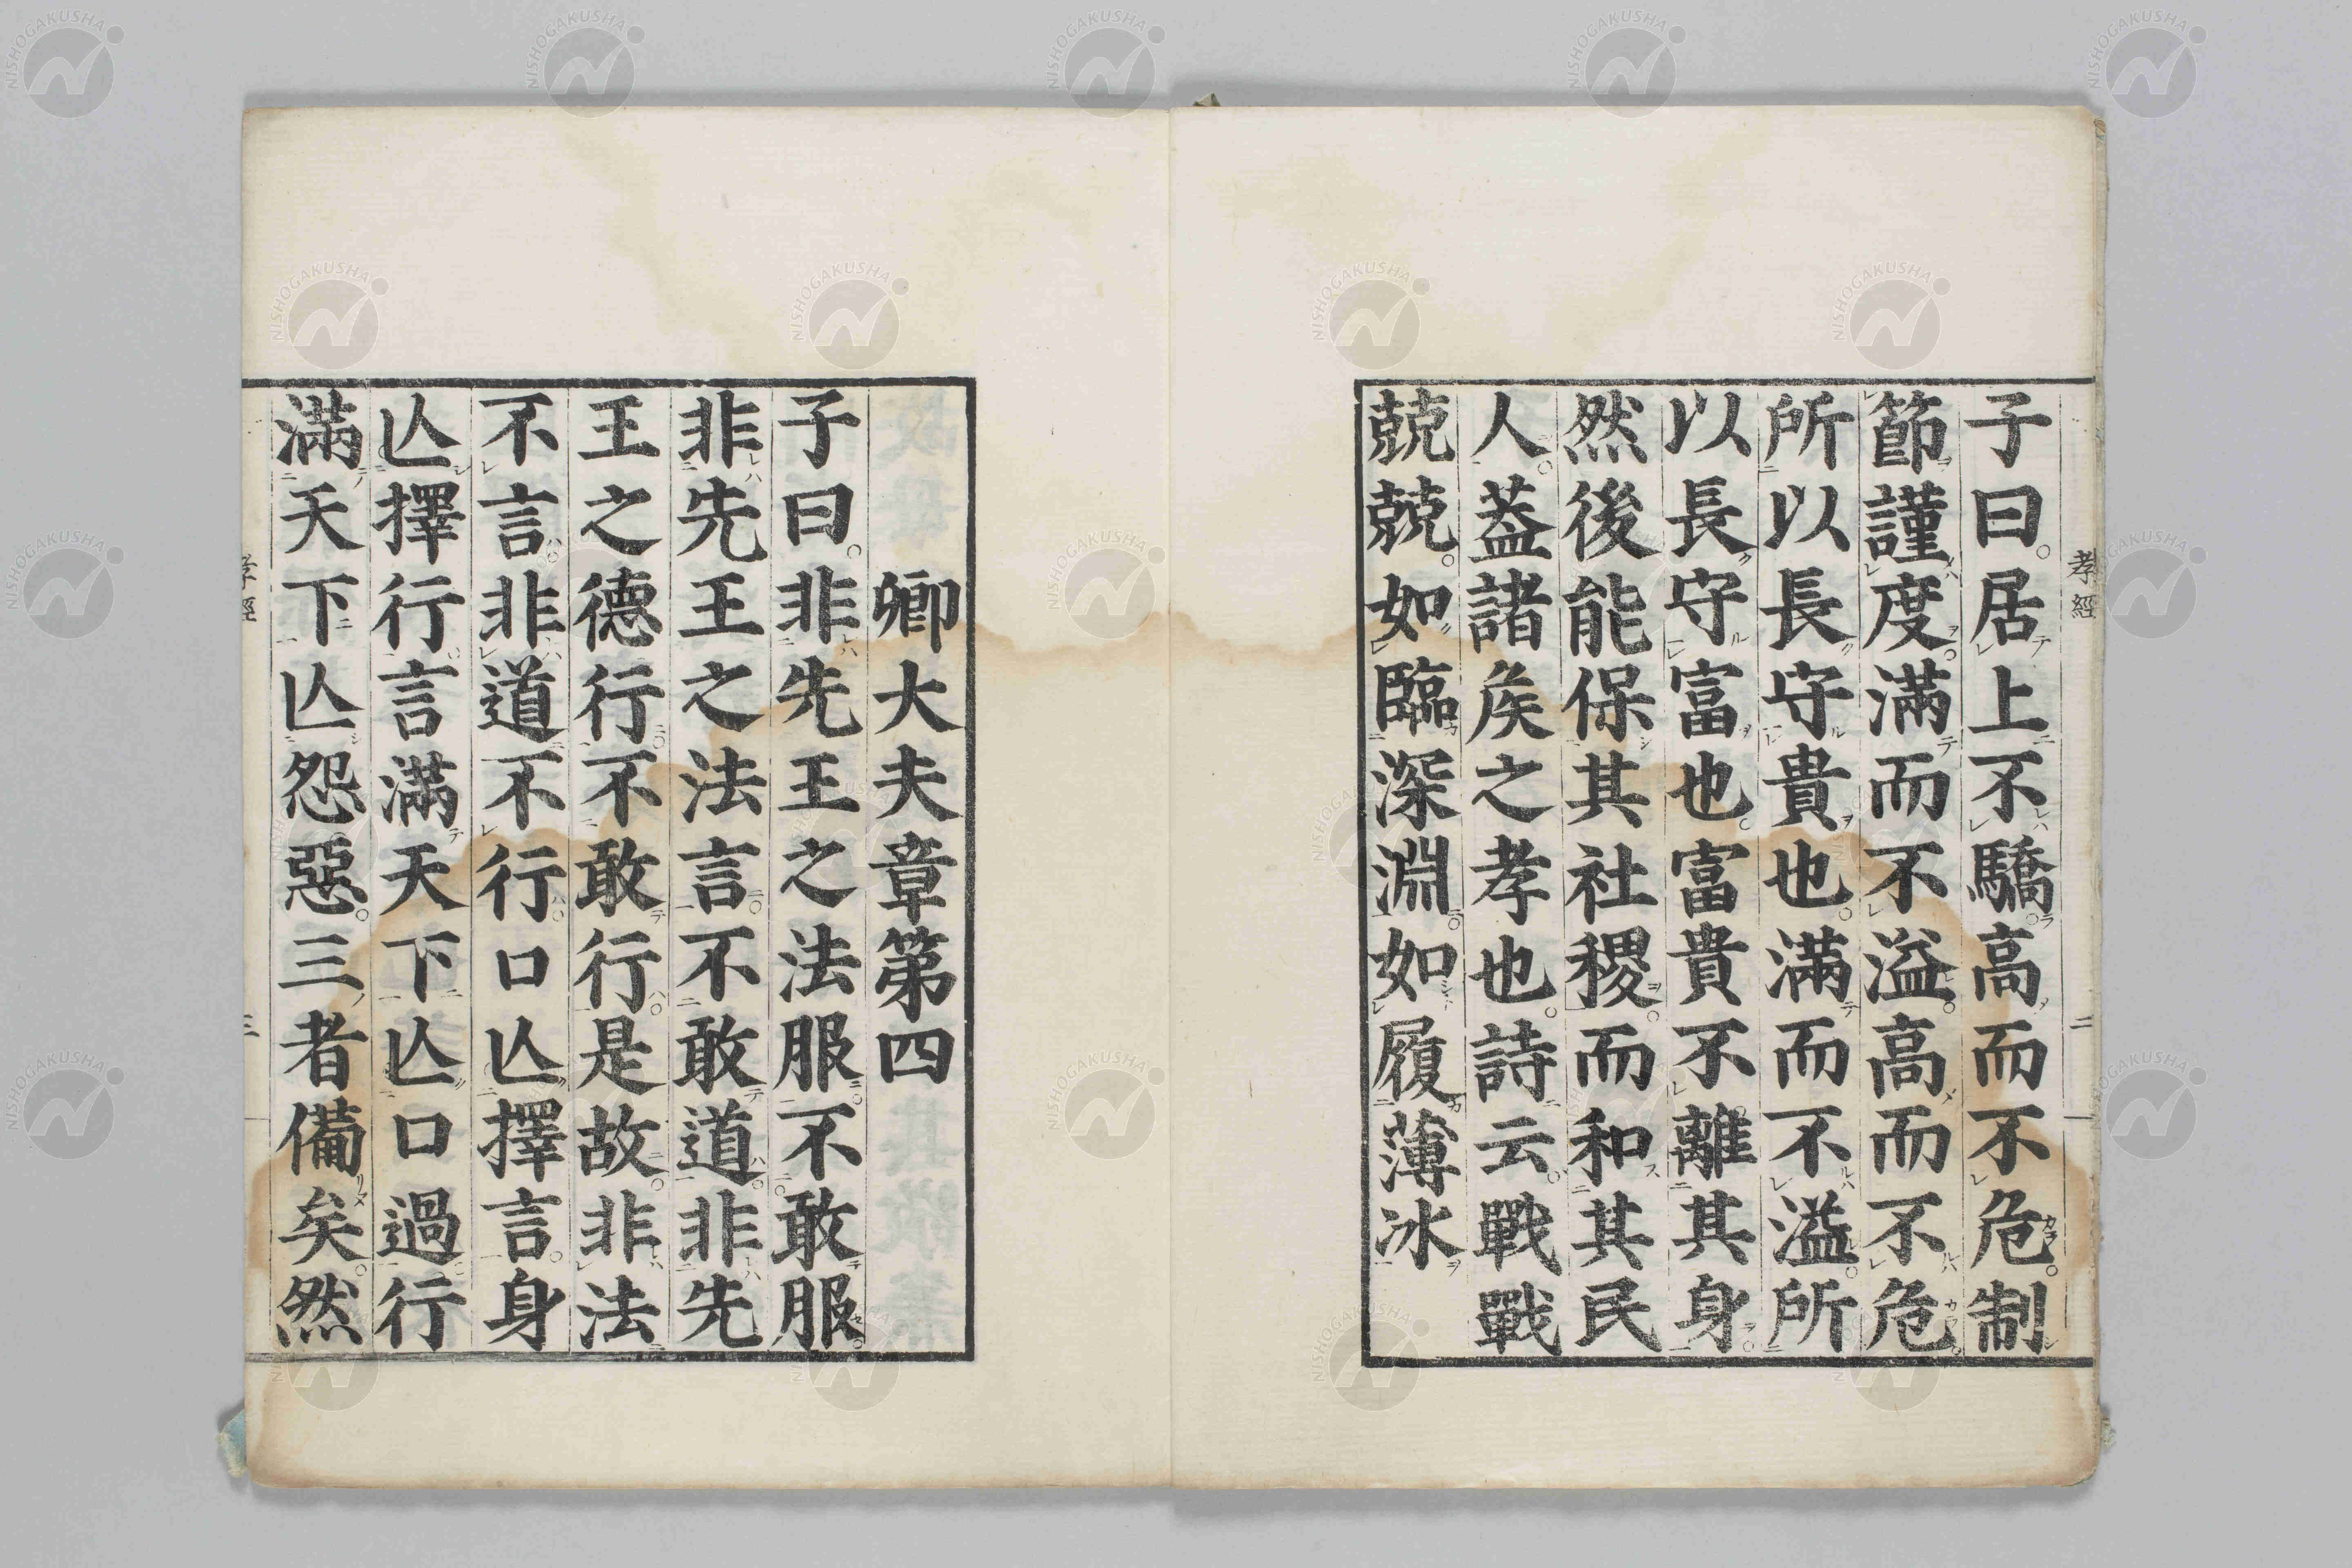 孝經 二
子曰居上不驕高而不危制
節謹度滿而不溢高而不危
所以長守貴也滿而不溢所
以長守富也富貴不離其身
然後能保其社稷而和其民
人葢諸矦之孝也詩云戰戰
兢兢如臨深淵如履薄冰
卿大夫章第四
子曰非先王之法服不敢服
非先王之法言不敢道非先
王之德行不敢行是故非法
不言非道不行口亾擇言身
亾擇行言滿天下亾口過行
滿天下亾怨惡三者備矣然
孝經 三
NISHOGAKUSHA